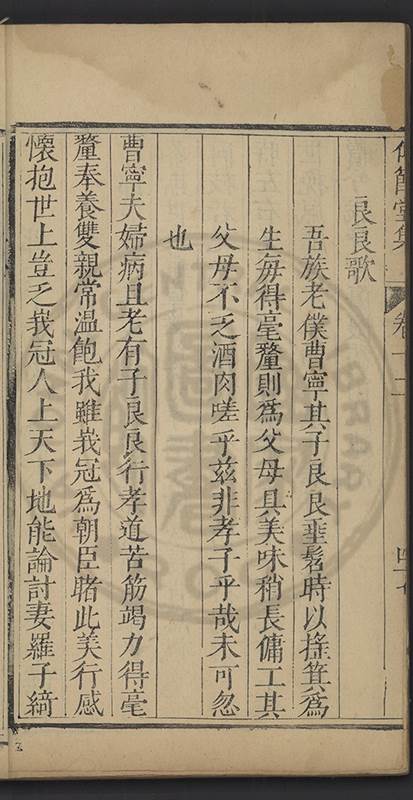 良良歌
吾族老僕曹寧其子良良垂髫時以搖箕為
生每得毫釐則為父母具美味稍長傭工其
父母不乏酒肉嗟乎茲非孝子乎哉未可忽
也
曹寧夫婦病且老有子良良行孝道苦筋竭力得毫
釐奉養雙親常温飽我雖峩冠為朝臣睹此美行感
懷抱世上豈乏峩冠人上天下地能論討妻羅子綺